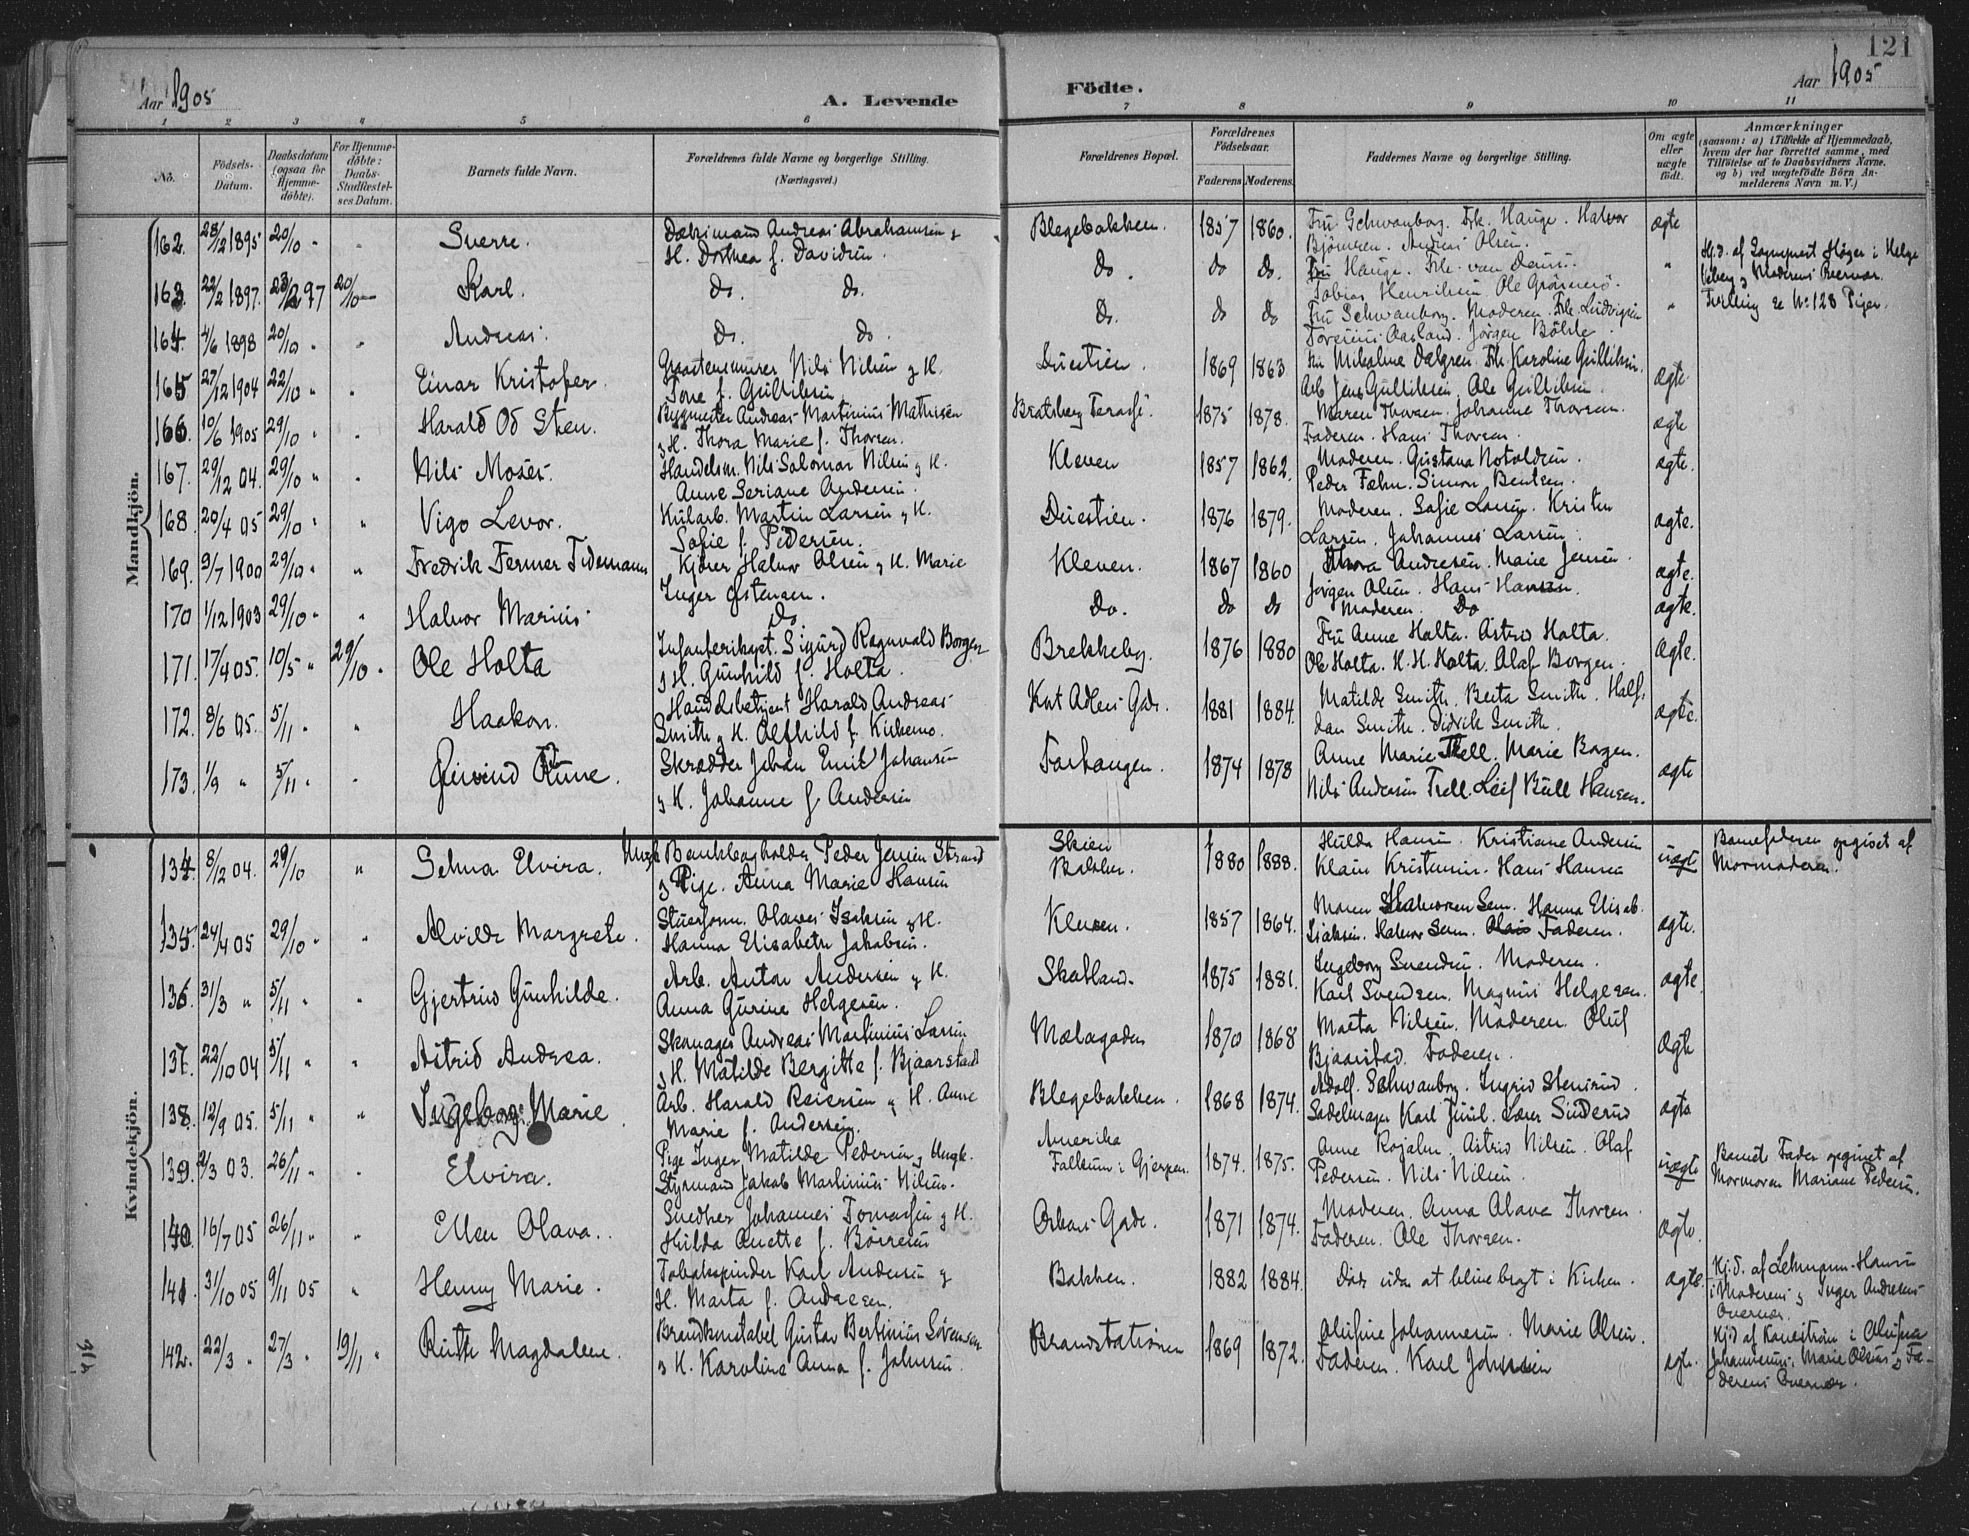 121
Aar 1905
A. Levende
Födte.
Aar 1905
1 2 3 4 5 6 7 8 9 10 11
No.
Födsels-Datum.
Daabsdatum (ogsaa for Hjemme-döbte).
For Hjemme-döbte: Daabs-Stadfæstel-ses Datum.
Barnets fulde Navn.
Forældrenes fulde Navne og borgerlige Stilling.
(Næringsvei.)
Forældrenes Bopæl.
Forældrenes Födselsaar.
Faderens Moderens
Faddernes Navne og borgerlige Stilling.
Om ægte eller uægte födt.
Anmærkninger
(saasom: a) i Tilfælde af Hjemmedaab,
hvem der har forrettet samme, med
Tilföielse af to Daabsvidners Navne,
og b) ved uægtefödte Börn An-
melderens Navn m. V.)
Mandkjön.
162. 28/12 1895 20/10 " " Sverre. Andreas Abrahamsen &
H. Dorthea f. Davidsen. Blegebakken. 1857 1860. Fru Schwanborg. Frk. Hauge. Halvor
Andreas Olsen. ægte
163 22/2 1897. 23/2 97 20/10 Karl. Do. Do. Do. Do Do. Fru Hauge. Frk.
Tobias Henriksen. Ole "
164 4/6 1898 20/10 " " Andreas. Do. Do. Do. Do Do Fru Schwanborg. Moderen. Frk. Ludvigsen
Jørgen "
Tvilling se No 128 Piger.
165 27/12 1904 22/10 " " Einar Kristofer. Nils Nilsen & H.
Tone f. Gulliksen. Duestien. 1869 1863 Karoline Gulliksen.
Arb. Jens Gulliksen Ole Gulliksen. ægte
166. 10/6 1905 29/10 " " Harald Od Sten. Bygmester Andreas Martinius Mathisen
& H. Thora Marie f. Thorsen. Bratsberg 1875 1878. Maren Thorsen. Johanne Thorsen.
Faderen. Hans Thorsen. ægte
167. 29/12 04. 29/10 " " Nils Moses. Handelsm. Nils Salomon Nilsen & H.
Anne Seriane Andersen. Kleven 1857 1862. Moderen. Gustava
Peder Simon Bentsen. ægte.
168. 20/4 05 29/10 " " Vigo Levor. Kularb. Martin Larsen & H.
Sofie f. Pedersen. Duestien. 1876 1879. Moderen. Sofie Larsen. Kristen
Larsen. Johannes Larsen. ægte.
169. 9/7 1900 29/10 " " Fredrik Fermer Tidemann Kjører Halvor Olsen & H. Marie
Inger Østensen. Kleven. 1867 1860 Thora Andresen. Marie Jensen.
Jørgen Olsen. Hans Hansen. ægte.
170 1/12 1903 29/10 " " Halvor Marius. Do. Do. Do Do Moderen. Do ægte.
171. 17/4 05. 10/5 " 29/10 " Ole Holta Sigurd Ragnvald Borgen
& H. Gunhild f. Holta. Brekkeby. 1876 1880 Fru Anne Holta. Astrid Holta.
Ole Holta. H. H. Holta. Olaf Borgen. ægte.
172. 8/6 05. 5/11 " " Haakon. Handelsbetjent Harald Andreas
Smith & H. f. 1881 1884. Matilde Smith. Berta Smith. Half-
dan Smith. Didrik Smith. ægte.
173. 1/9 " 5/11 " " Eivind Rune. Skrædder Johan Emil Johansen
& H. Johanne f. Andersen 1874 1878 Anne Marie Trell. Marie Borgen.
Nils Andersen Trell. Leif Bull Hansen. ægte
Kvindekjön.
134. 8/12 04. 29/10 " Selma Elvira. Ungk. Peder Jensen Strand
& Pige. Anna Marie Hansen Skien
Bakken. 1880 1888. Hulda Hansen. Kristiane Andersen
Klaus Kristensen. Hans Hansen uægt Barnefaderen opgivet af
Mormoderen.
135. 24/4 05 29/10 " " Alvilde Margrete. Olaves Isaksen & H.
Hanna Elisabeth Jakobsen. Kleven. 1857 1864. Maren Sem. Hanna Elisab.
Isaksen. Halvor Sem. Faderen. ægte.
136. 31/3 " 5/11 " " Gjertrud Gunhilde. Arb. Anton Andersen & H.
Anna Gurine Helgesen. Skotland. 1875 1881. Ingeborg Svendsen. Moderen.
Karl Svendsen. Magnus Helgesen. ægte.
137. 22/10 04 5/11 " " Astrid Andrea. Skomager Andreas Martinius Larsen
& H. Matilde Bergitte f. Bjaarstad Mælagaden 1870 1868 Marta Nilsen. Moderen. Oluf
Bjaarstad. Faderen. ægte
138. 12/9 05. 5/11 " " Ingeborg Marie Arb. Harald Reiersen & H. Anne
Marie f. Andersen. Blegebakken. 1868 1874. Adolf. Schwanborg. Ingrid Stensrud.
Sadelmager Karl Juul. ægte
139. 2/3 03. 26/11 " Elvira. Pige Inger Matilde Pedersen & Ungk.
Styrmand Jakob Martinius Nilsen. Amerika
Falkum i Gjerpen. 1874. 1875. Anne Astrid Nilsen. Olaf
Pedersen. Nils Nilsen. uægte Barnets Fader opgivet af
Mormoren Mariane Pedersen.
140. 16/7 05 26/11 " " Ellen Olava. Snedker Johannes Tomassen & H.
Hilda Anette f. Børresen Gade. 1871 1874. Moderen. Anna Olava Thorsen.
Faderen. Ole Thorsen. ægte.
141 31/10 05 9/11 05 " Henny Marie. Tobakspinder Karl Andersen &
H. Marta f. Andresen. Bakken. 1882 1884 Død uden at blive bragt i Kirken. ægte. Hj.d. af Lehmann-Hansen
i Moderens & Inger Andresens
Overvær.
142. 22/3 " 27/3 " 19/11 " Ruth Magdalene. Brandkonstabel Gustav Bertinius Sørensen
& H. Karoline Anna f. Johnsen. Brandstationen 1869 1872. Olufine Johannesen. Marie Olsen.
Faderen. Karl Johnsen ægte. Hj.d af i Olufine
Johannesens, Marie Olsens & Fa-
derens Overvær.